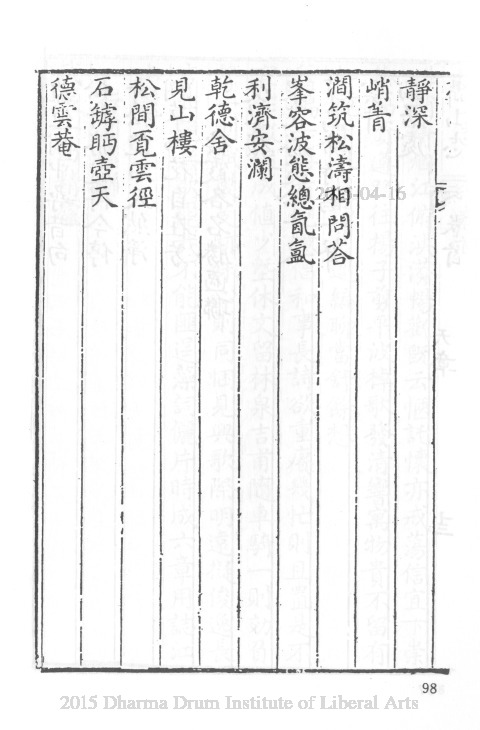 靜深
峭蒨
澗筑松濤相問答
峯容波態總氤氳
利濟安瀾
乾德舍
見山樓
松間覔雲徑
石罅眄壺天
德雲菴
2015-04-16
98
2015 Dharma Drum Institute of Liberal Arts